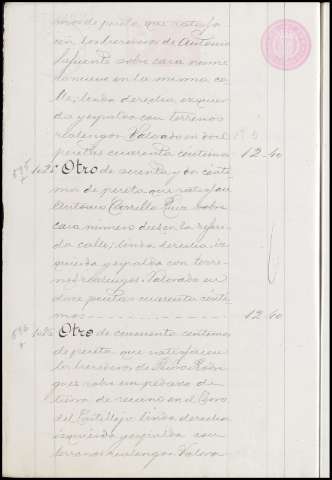 mos de peseta que satisfa
cen los herederos de Antonio
Lafuente sobre casa nume
ro nueve en la misma ca
lle, linda derecha, izquier
da y espalda con terrenos
realengos. Valorado en doce
pesetas cuarenta centimos 12 40
1025 Otro de sesenta y dos centi
mos de peseta que satisface
Antonio Carrillo Ruiz sobre
casa número diez en la referi
da calle, linda derecha, iz
quierda y espalda con terre
nos realengos. Valorado en
doce pesetas cuarenta cénti
mos 12 40
1026 Otro de cincuenta centimos
de peseta que satisfacen
los herederos de
sobre un pedazo de
tierra de secano en el Cerro
del Castillejo linda derecha
izquierda y espalda con
terrenos realengos. Valora